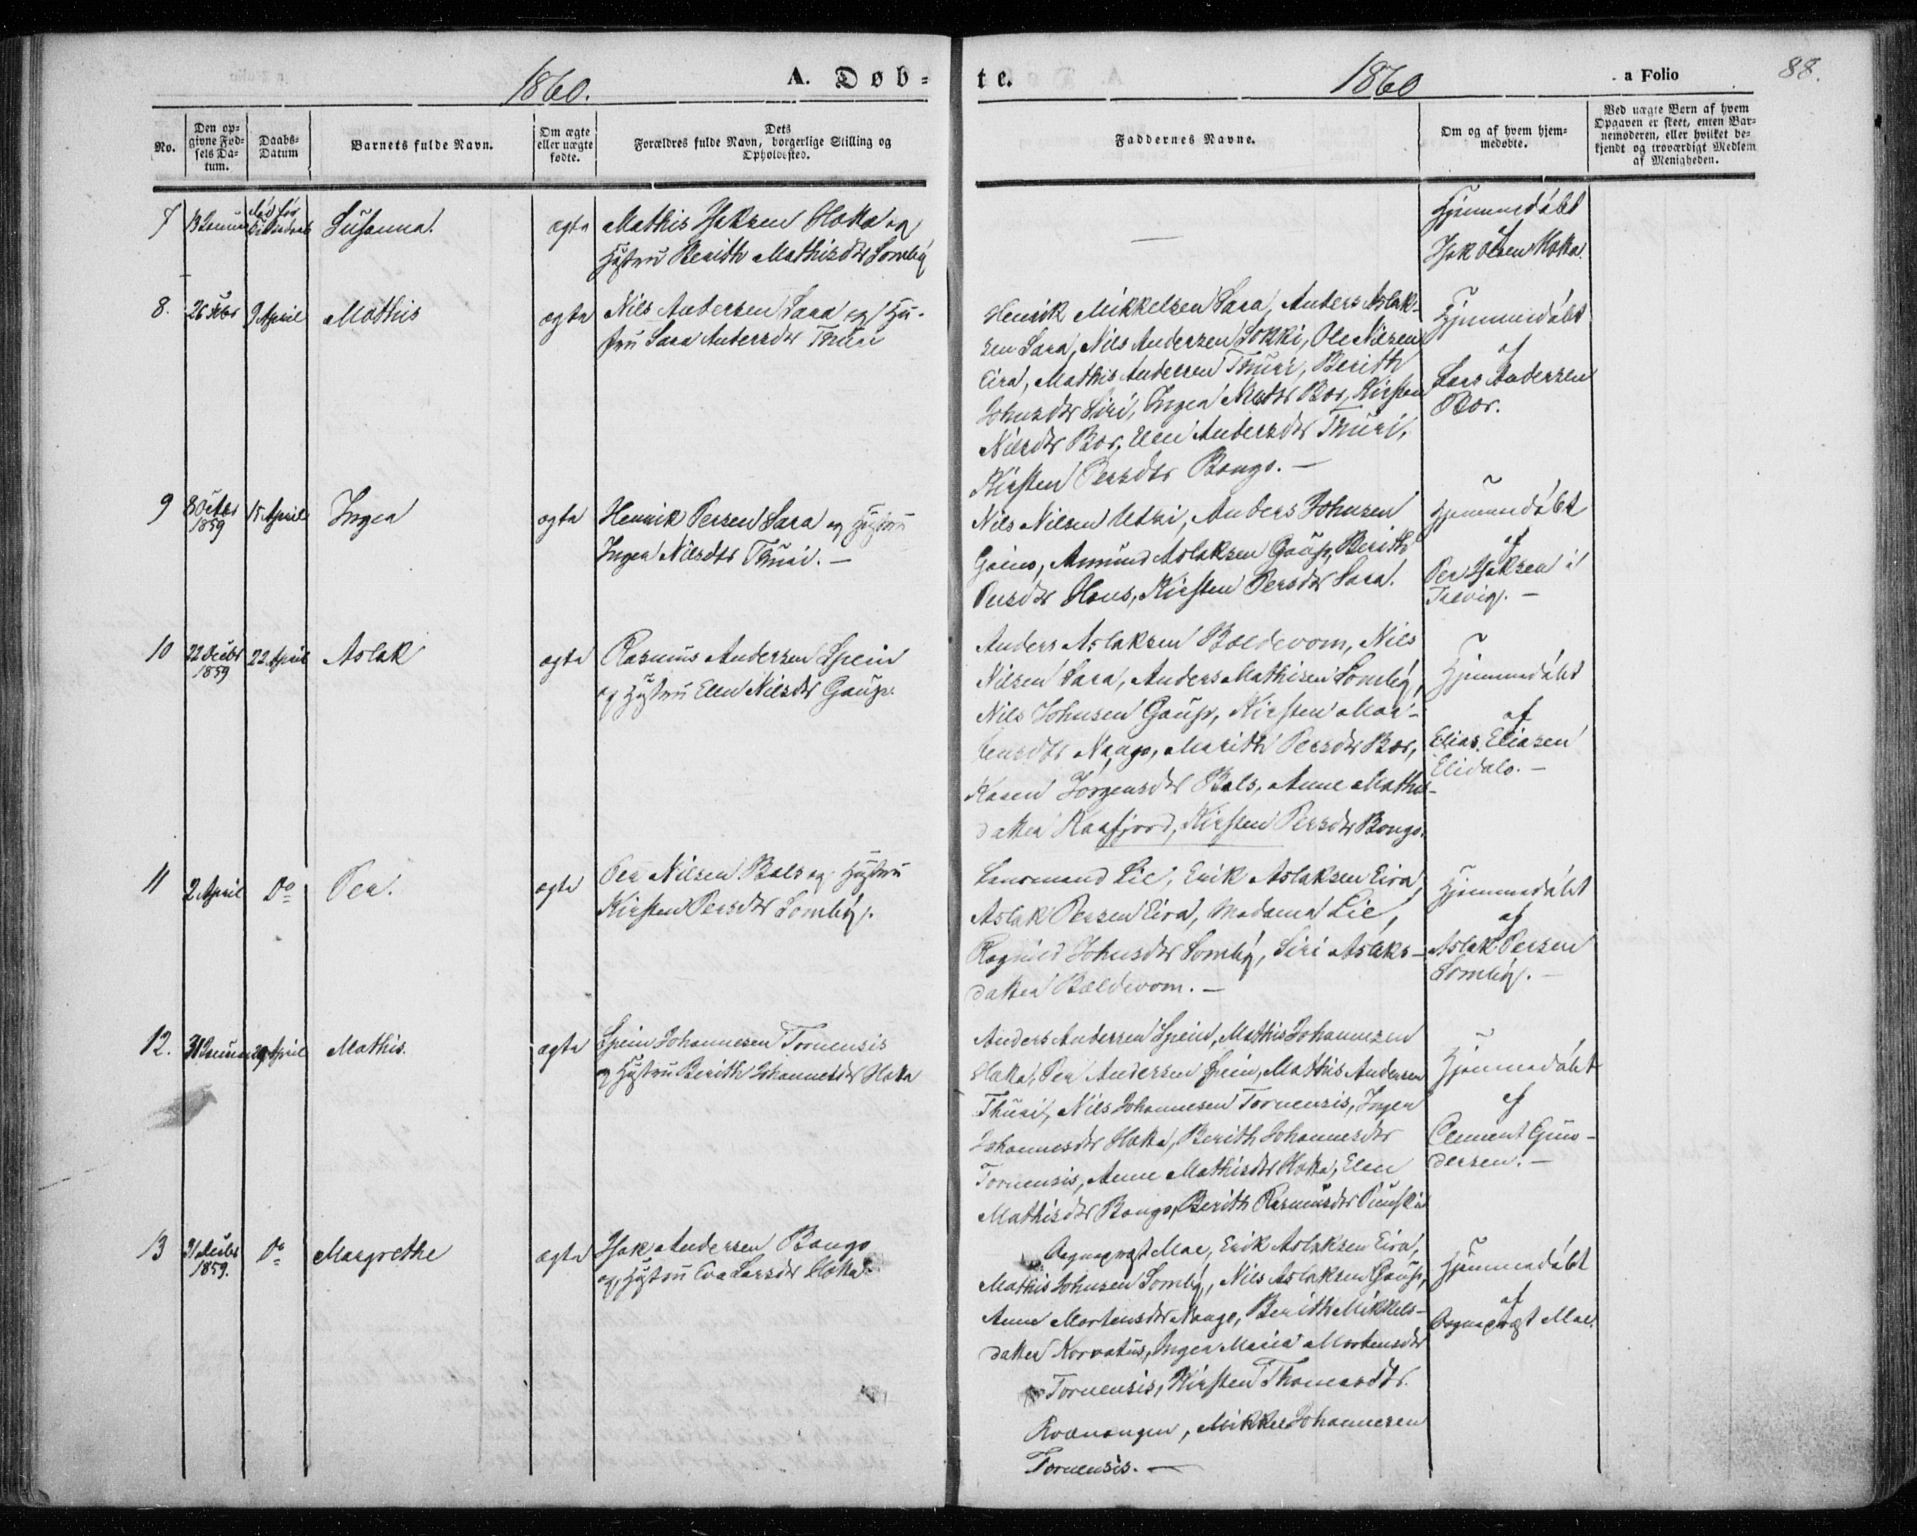 1860. A. Døb-
te. 1860 a Folio 88.
No. Den opgivne Fødsels Datum. Daabs-Datum Barnets fulde Navn. Om ægte eller uægte fødte. Dets Forældres fulde Navn, borgerlige Stilling og Opholdssted.
Faddernes Navne. Om og af hvem hjemmedøbte. Ved uægte Børn af hvem Opgaven er skeet, enten Barnemoderen, eller hvilket bekjendt og troværdigt Medlem af Menigheden.
7 Susanna. ægte Mathis Isaksen Hætta og
Hustru Berith Mathisdtr Somby
—
Hjemmedøbt
af
Isak Olsen Hætta.
8. 26 Febr 9 April Mathis ægte Nils Andersen Sara og Hu-
stru Sara Andersdtr Thuri
Henrik Mikkelsen Sara, Anders Aslak-
sen Sara, Nils Andersen Sokki, Ole Nilsen
Eira, Mathis Andersen Thuri, Berith
Johnsdtr Siri, Ingea Nilsdtr Bær, Kirsten
Nilsdtr Bær, Elen Andersdtr Thuri,
Kirsten Persdtr Bongo. —
Hjemmedøbt
af
Lars Andersen
Bær.
9 8 Octbr 1859 15 April Ingea ægte Henrik Persen Sara og Hustru
Ingea Nilsdtr Thuri. —
Nils Nilsen Utsi, Anders Johnsen
Gaino, Amund Aslaksen Gaup, Berith
Persdtr Hæus, Kirsten Persdtr Sara.
Hjemmedøbt
af
Per Isaksen i
Talvig. —
10 22 Decbr 1859 22 April Aslak ægte Rasmus Andersen Spein
og Hustru Elen Nilsdtr Gaup.
Anders Aslaksen Bældevom, Nils
Nilsen Sara, Anders Mathisen Somby,
Nils Johnsen Gaup, Kirsten Mor-
tensdtr Nango, Marith Persdtr Bær,
Karen Jørgensdtr Bals, Anne Mathis-
datter Kaafjord, Kirsten Persdtr Bongo.
Hjemmedøbt
af
Elias Eliasen
Elidalo. —
11 2 April Do Per. ægte Per Nilsen Bals og Hustru
Kirsten Persdtr Somby.
Lensmand Lie, Erik Aslaksen Eira,
Aslak Persen Eira, Madame Lie,
Ragnild Johnsdtr Somby, Siri Aslaks-
datter Bældevom. —
Hjemmedøbt
af
Aslak Persen
Somby. —
12. 31 Januar 29 April Mathis. ægte Spein Johannesen Tornensis
og Hustru Berith Johannesdtr Hætta
Anders Andersen Spein, Mathis Johannesen
Hætta, Per Andersen Spein, Mathis Andersen
Thuri, Nils Johannesen Tornensis, Ingea
Johannesdtr Hætta, Berith Johannesdtr
Tornensis, Anne Mathisdtr Hætta, Elen
Mathisdtr Bongo, Berith Rasmusdtr
Hjemmedøbt
af
Clement Gun-
dersen. —
13 31 Decbr 1859. Do Margrethe ægte Isak Andersen Bongo
og Hustru Eva Larsdtr Hætta
Sognepræst Mæe, Erik Aslaksen Eira,
Mathis Johnsen Somby, Nils Aslaksen Gaup,
Anne Mortensdtr Nango, Berith Mikkels-
datter Korvatus, Ingea Maria Mortensdtr
Tornensis, Kirsten Thomasdtr
Kvænangen, Mikkel Johannesen
Tornensis. —
Hjemmedøbt
af
Sognepræst Mæe.